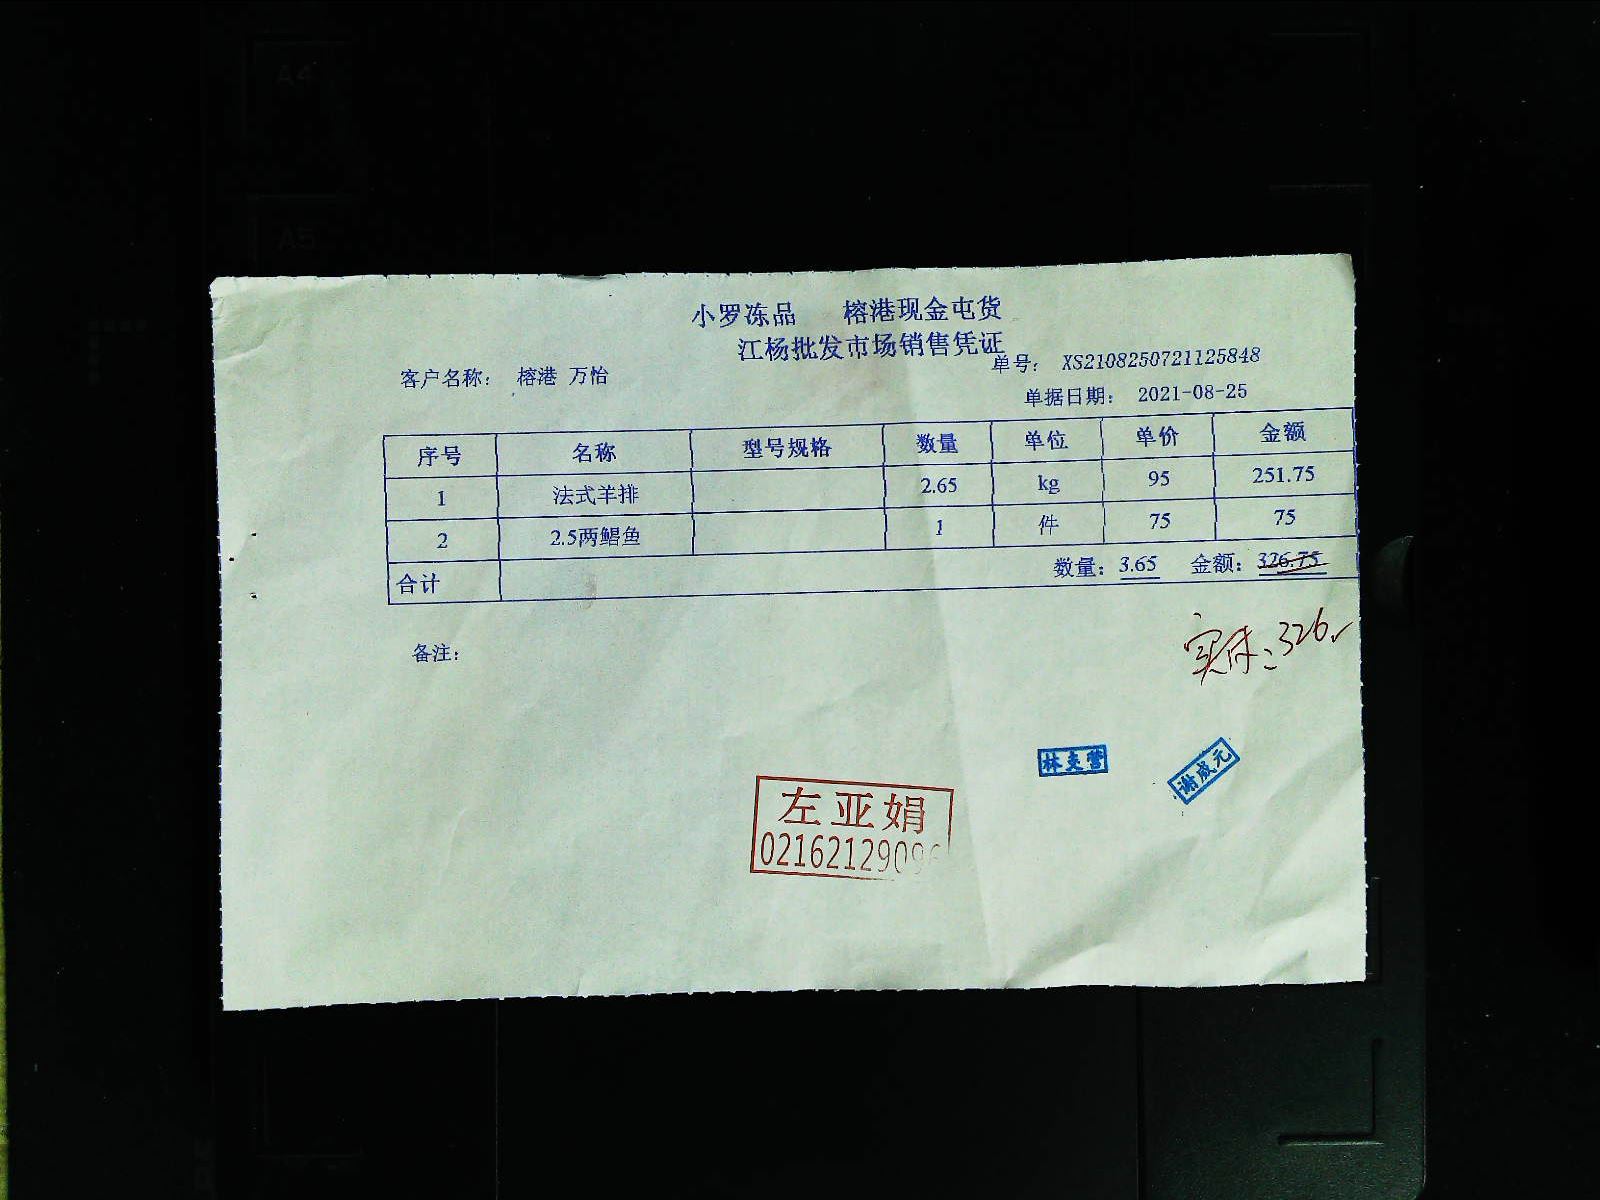 A4
A5
小罗冻品 榕港现金屯货
江杨批发市场销售凭证
单号： XS2108250721125848
客户名称： 榕港 万怡
单据日期： 2021-08-25
序号 名称 型号规格 数量 单位 单价 金额
1 法式羊排 2.65 kg 95 251.75
2 2.5两鲳鱼 1 件 75 75
合计 数量：3.65 金额：326.75
实付：326
备注：
林支营
谢成元
左亚娟
0216212909